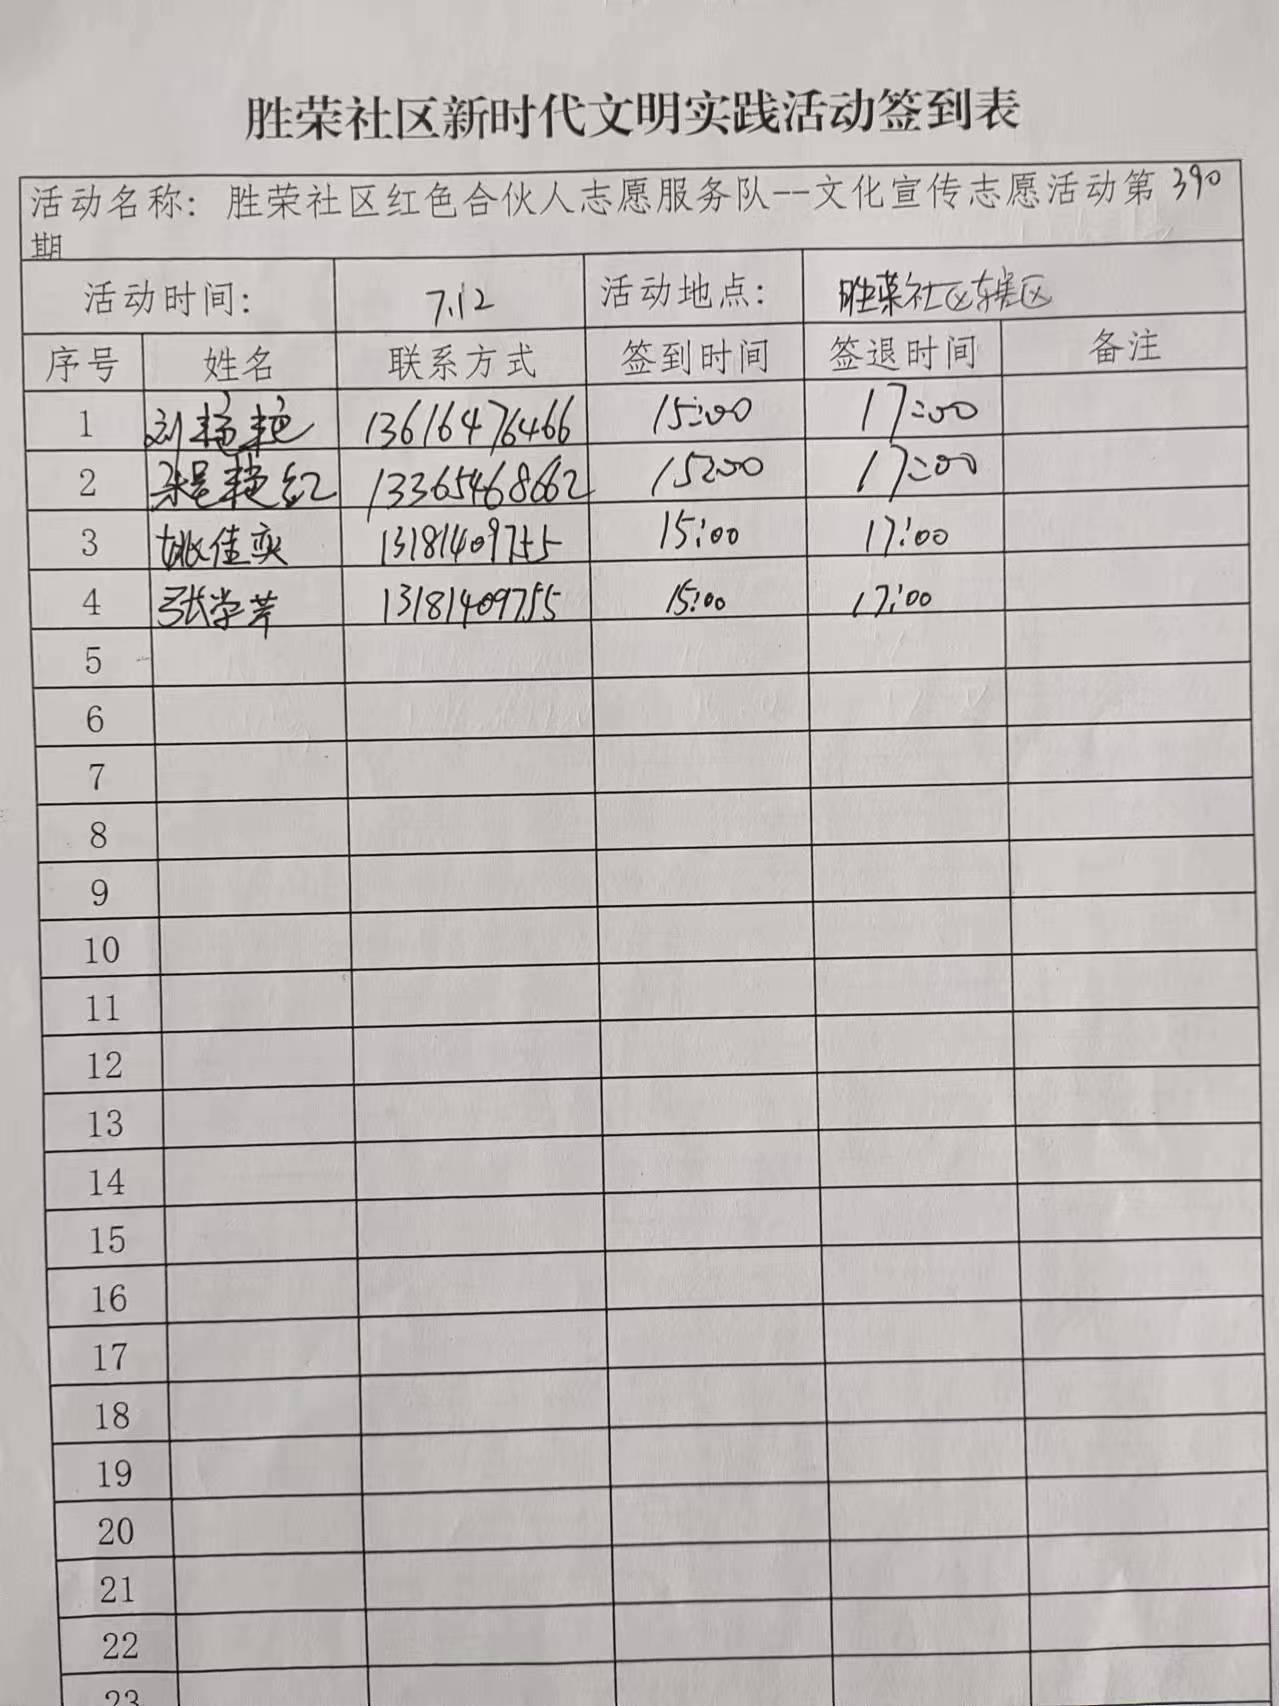 胜荣社区新时代文明实践活动签到表
活动名称: 胜荣社区红色合伙人志愿服务队--文化宣传志愿活动第390
期
活动时间: 7.12 活动地点: 胜荣社区辖区
序号 姓名 联系方式 签到时间 签退时间 备注
1 刘艳艳 13616476466 15:00 17:00
2 艳红 13365468662 15:00 17:00
3 姚佳奕 13181409755 15:00 17:00
4 张学芹 13181409755 15:00 17:00
5
6
7
8
9
10
11
12
13
14
15
16
17
18
19
20
21
22
23